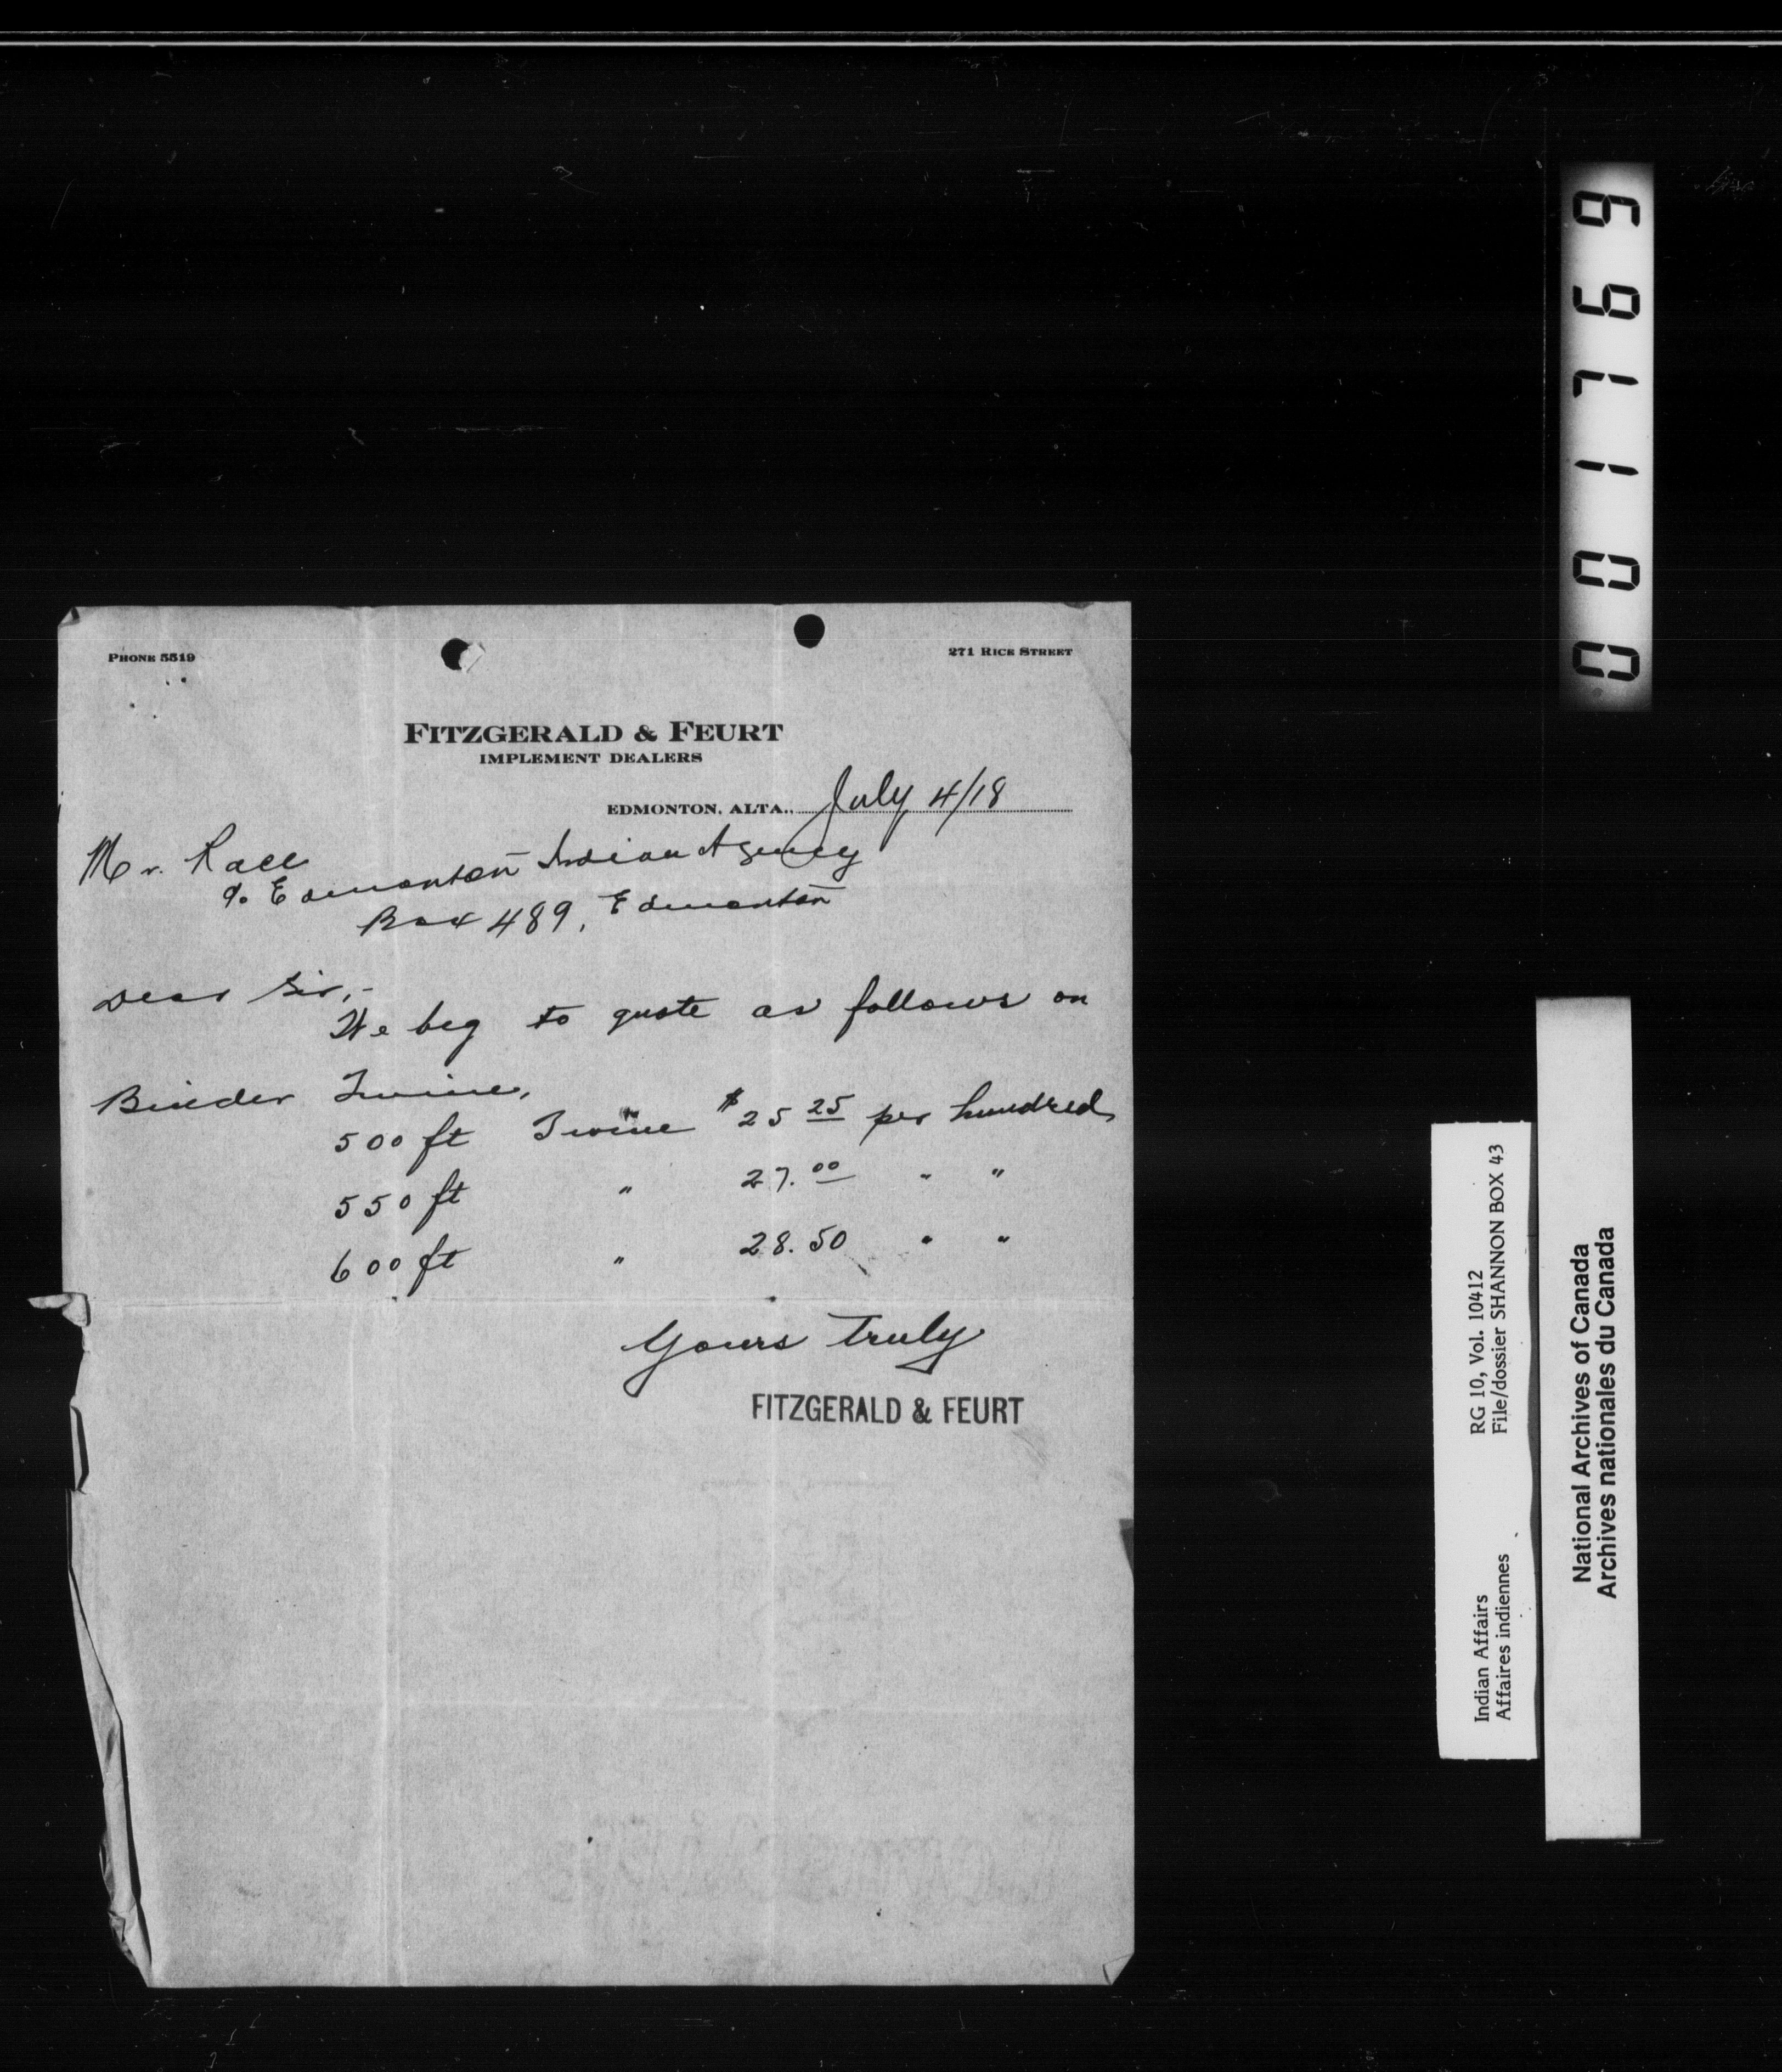 PHONE 5519
271 RICE STREET
FITZGERALD & FEURT
IMPLEMENT DEALERS
EDMONTON, ALTA., July 4/18
Mr. Race
c/o Edmonton Indian Agency
Box 489, Edmonton
Dear Sir,-
We beg to quote as follows on
Binder Twine,
500 ft Twine $25 25 per hundred
550 ft " 27.00 " "
600 ft " 28.50 " "
Yours Truly
FITZGERALD & FEURT
001769
Indian Affairs RG 10, Vol. 10412
Affaires indiennes File/dossier SHANNON BOX 43
National Archives of Canada
Archives nationales du Canada